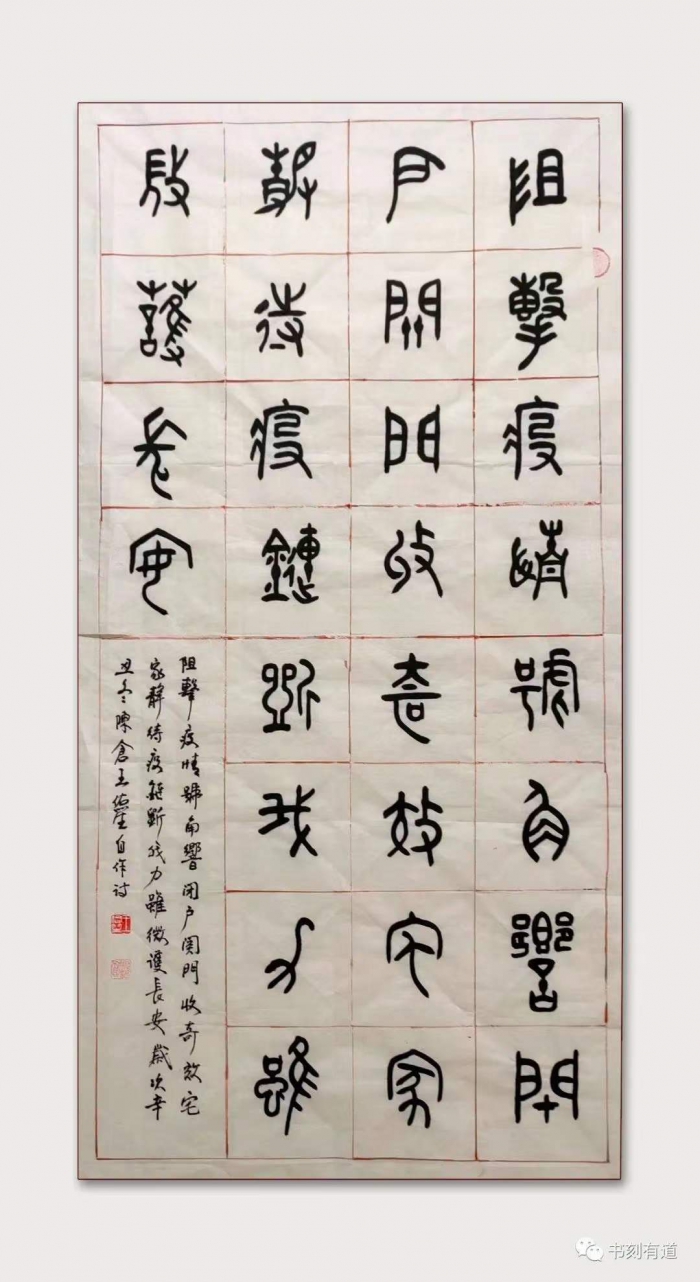 阻擊疫情號角響閉
戶關門收奇效宅家
靜待疫鏈斷我力雖
微護長安
阻擊疫情號角響閉户関門收奇效宅
家靜待疫鏈斷我力雖微護長安歲次辛
丑冬陳倉王自作詩
书刻有道